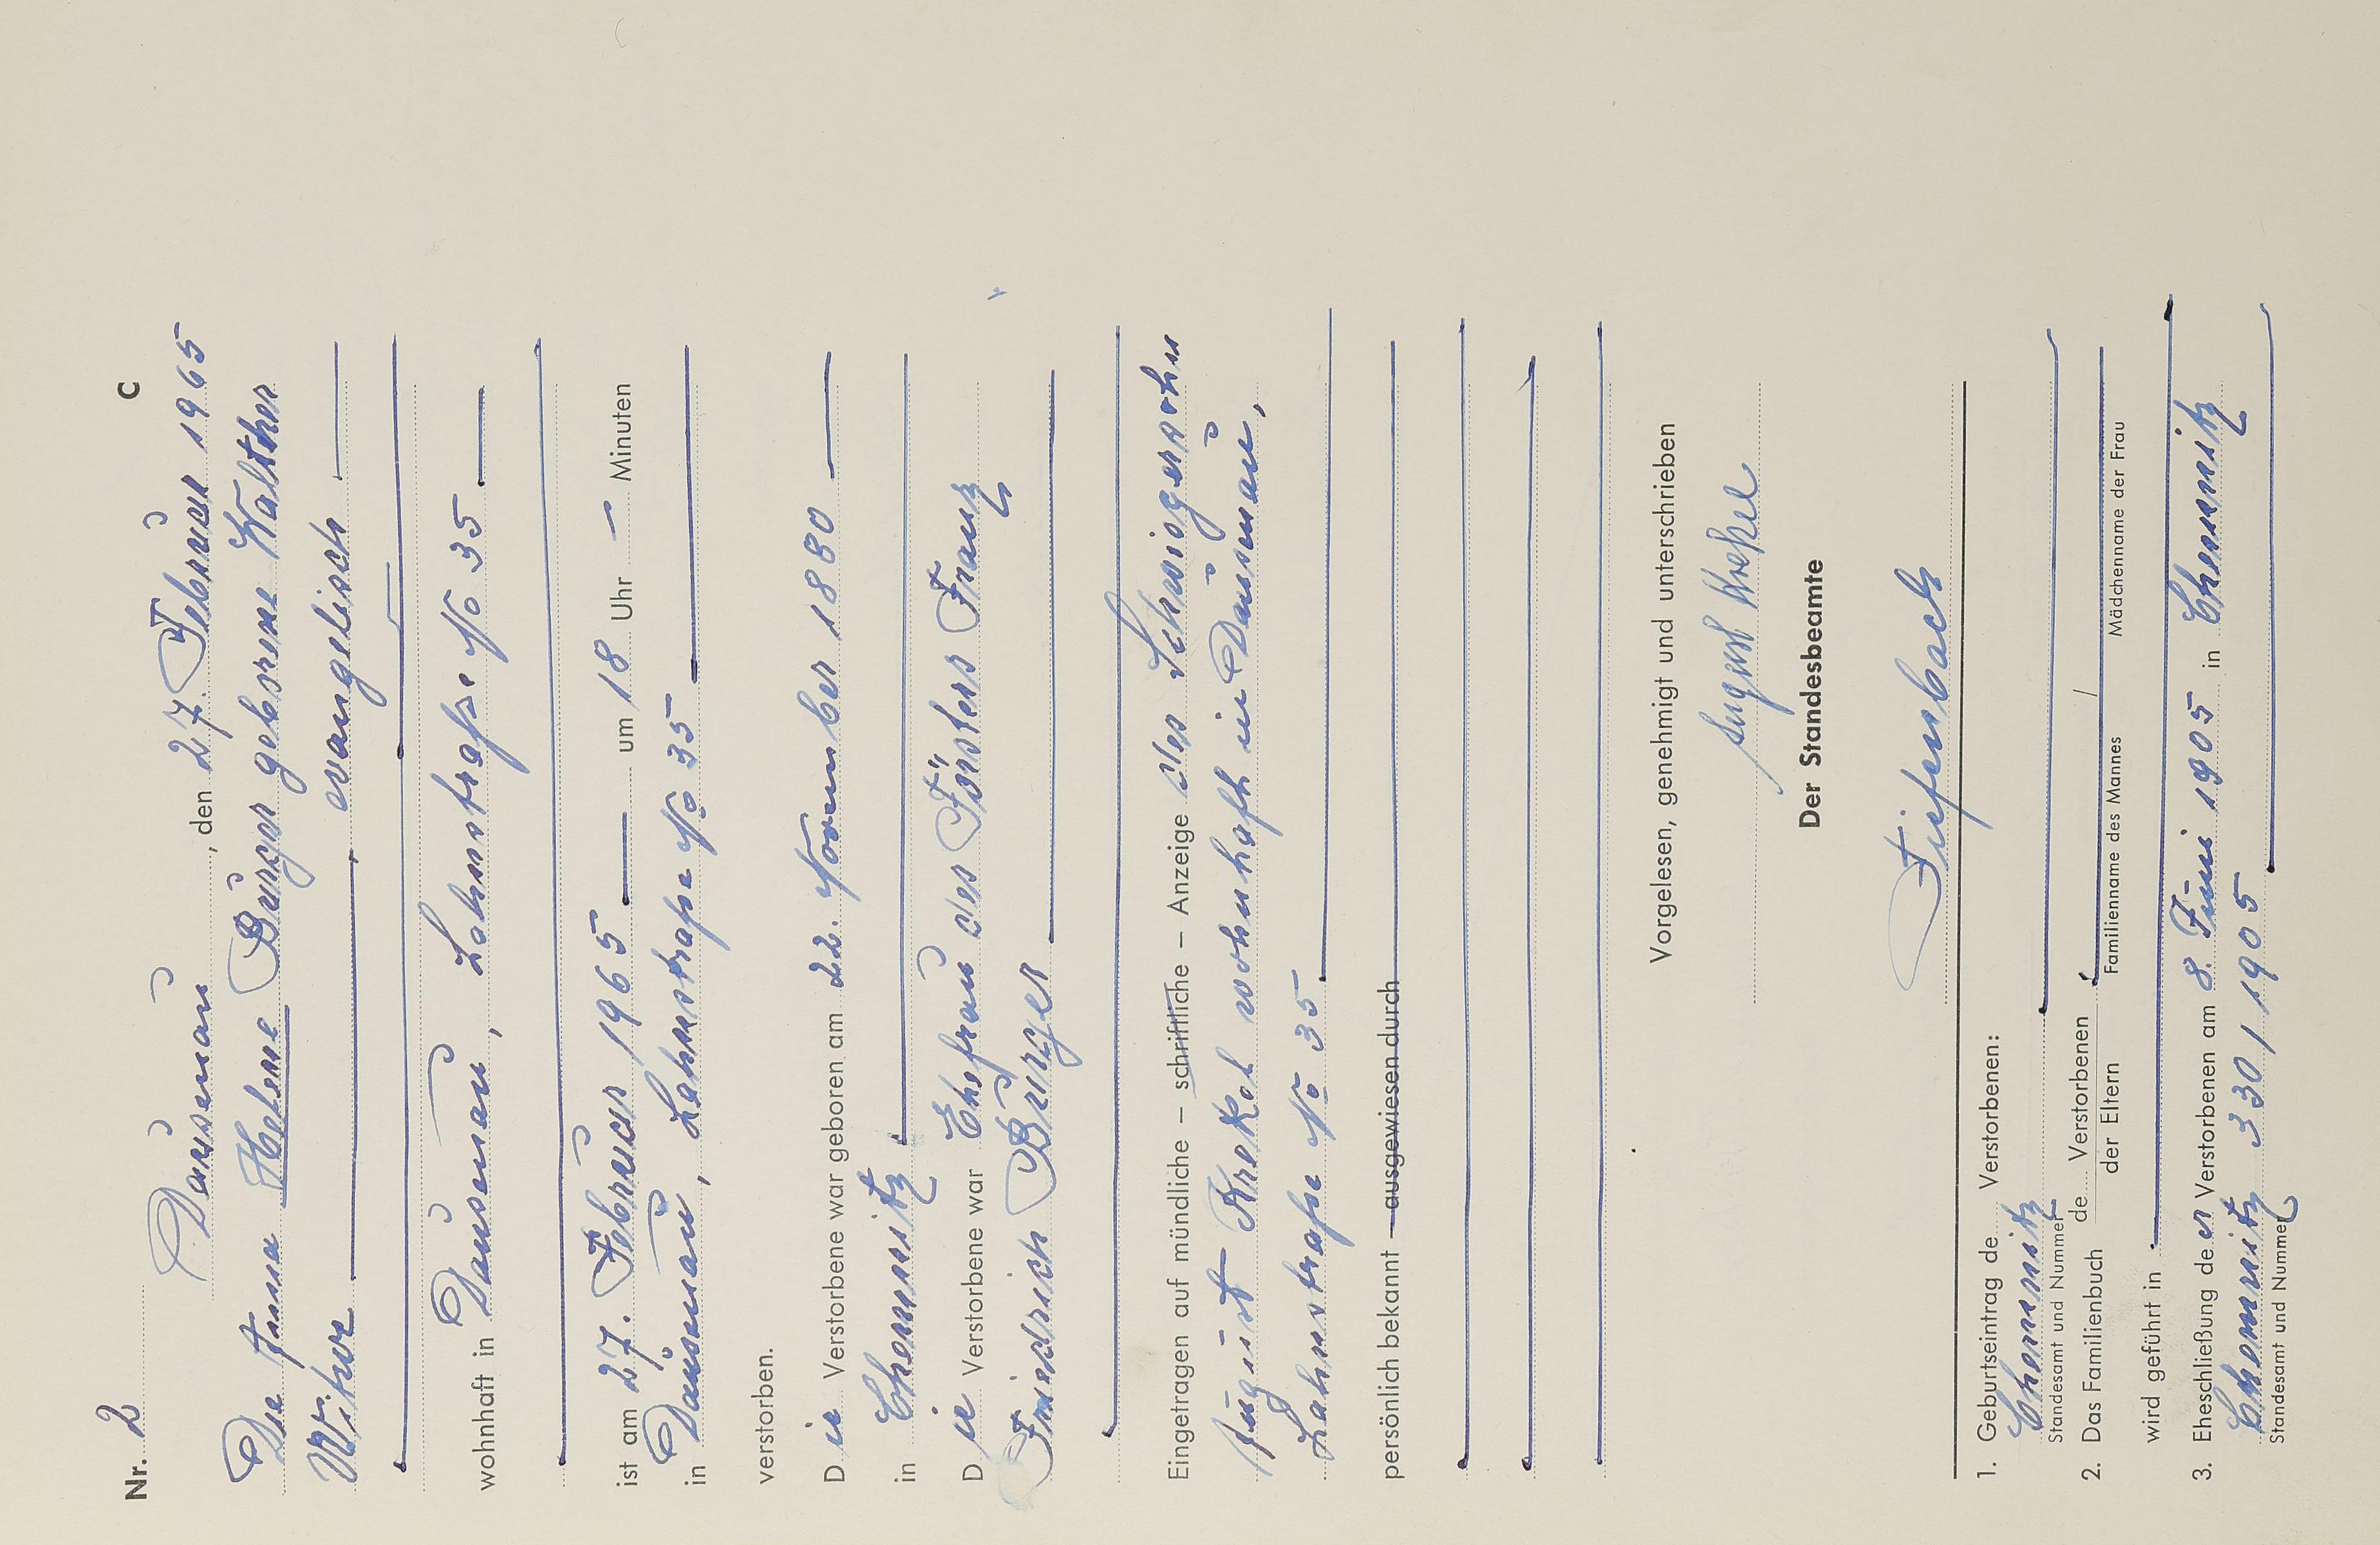 Nr. 2 C
Dausenau, den 27. Februar 1965
Die Anna Helene Bürger geborene Walther
Witwe, evangelisch
wohnhaft in Dausenau, Lahnstraße No 35
ist am 27. Februar 1965 um 18 Uhr — Minuten
in Dausenau, Lahnstraße No 35
verstorben.
Die Verstorbene war geboren am 22. November 1880
in Chemnitz
Die Verstorbene war Ehefrau des Försters Franz
Friedrich Bürger
Eingetragen auf mündliche – schriftliche – Anzeige des Schwiegersohn
August Krekel wohnhaft in Dausenau,
Lahnstraße No 35.
persönlich bekannt – ausgewiesen durch
Vorgelesen, genehmigt und unterschrieben
August Krekel
Der Standesbeamte
Tiefenbach
1. Geburtseintrag de Verstorbenen:
Chemnitz
Standesamt und Nummer
2. Das Familienbuch de Verstorbenen der Eltern /
Familienname des Mannes Mädchenname der Frau
wird geführt in
3. Eheschließung der Verstorbenen am 8. Juni 1905 in Chemnitz
Chemnitz 330/1905
Standesamt und Nummer